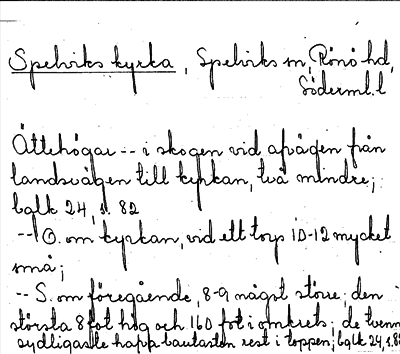 Spelviks kyrka, Spelviks sn, Rönö hd,
Söderml. l
Ättehögar -- i skogen vid afvägen från
landsvägen till kyrkan, två mindre;
balk 24, s. 82
-- O. om kyrkan, vid ett torp 10-12 mycket
små;
-- S. om föregående, 8-9 något större; den
största 8 fot hög och 160 fot i omkrets; de tvenne
sydligaste hafva bautasten rest i toppen; balk 24, s. 82